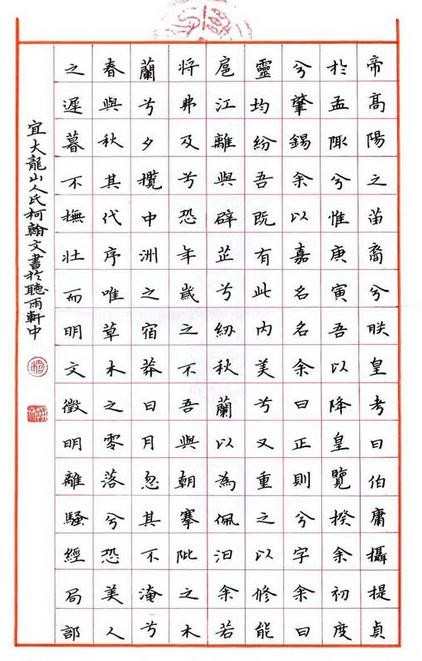 帝高陽之苗裔兮朕皇考曰伯庸攝提貞
於孟陬兮惟庚寅吾以降皇覽揆余初度
兮肇錫余以嘉名名余曰正則兮字余曰
靈均紛吾既有此內美兮又重之以修能
扈江離與辟芷兮紉秋蘭以為佩汩余若
將弗及兮恐年歲之不吾與朝搴阰之木
蘭兮夕攬中洲之宿莽日月忽其不淹兮
春與秋其代序唯草木之零落兮恐美人
之遲暮不撫壯而明文徵明離騷經局部
宜大龍山人氏柯翰文書於聽雨軒中